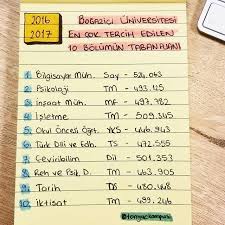 2016
2017
BOĞAZİÇİ ÜNİVERSİTESİ
EN ÇOK TERCİH EDİLEN
10 BÖLÜMÜN TABAN PUANI
1. Bilgisayar Müh. Say - 521,063
2. Psikoloji TM - 493,45
3. İnşaat Müh. MF - 497,782
4. İşletme TM - 504,
5. Okul Öncesi Öğrt. YKS - 446,943
6. Türk Dili ve Edb. TS - 472,555
7. Çeviribilim Dil - 501,353
8. Reh ve Psik. D. TM - 463,905
9. Tarih TS - 480,448
10. İktisat TM - 499,246